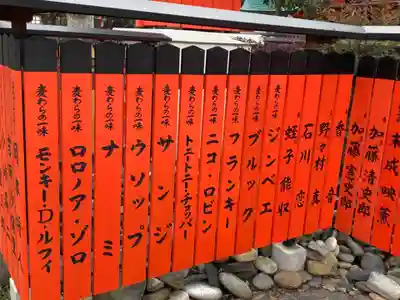 麦わらの一味 モンキー・D・ルフィ
麦わらの一味 ロロノア・ゾロ
麦わらの一味 ナミ
麦わらの一味 ウソップ
麦わらの一味 サンジ
麦わらの一味 トニートニー・チョッパー
麦わらの一味 ニコ・ロビン
麦わらの一味 フランキー
麦わらの一味 ブルック
麦わらの一味 ジンベエ
蛭子能収
石川恋
野々村真
香音
加藤憲史郎
加藤清史郎
末成映薫